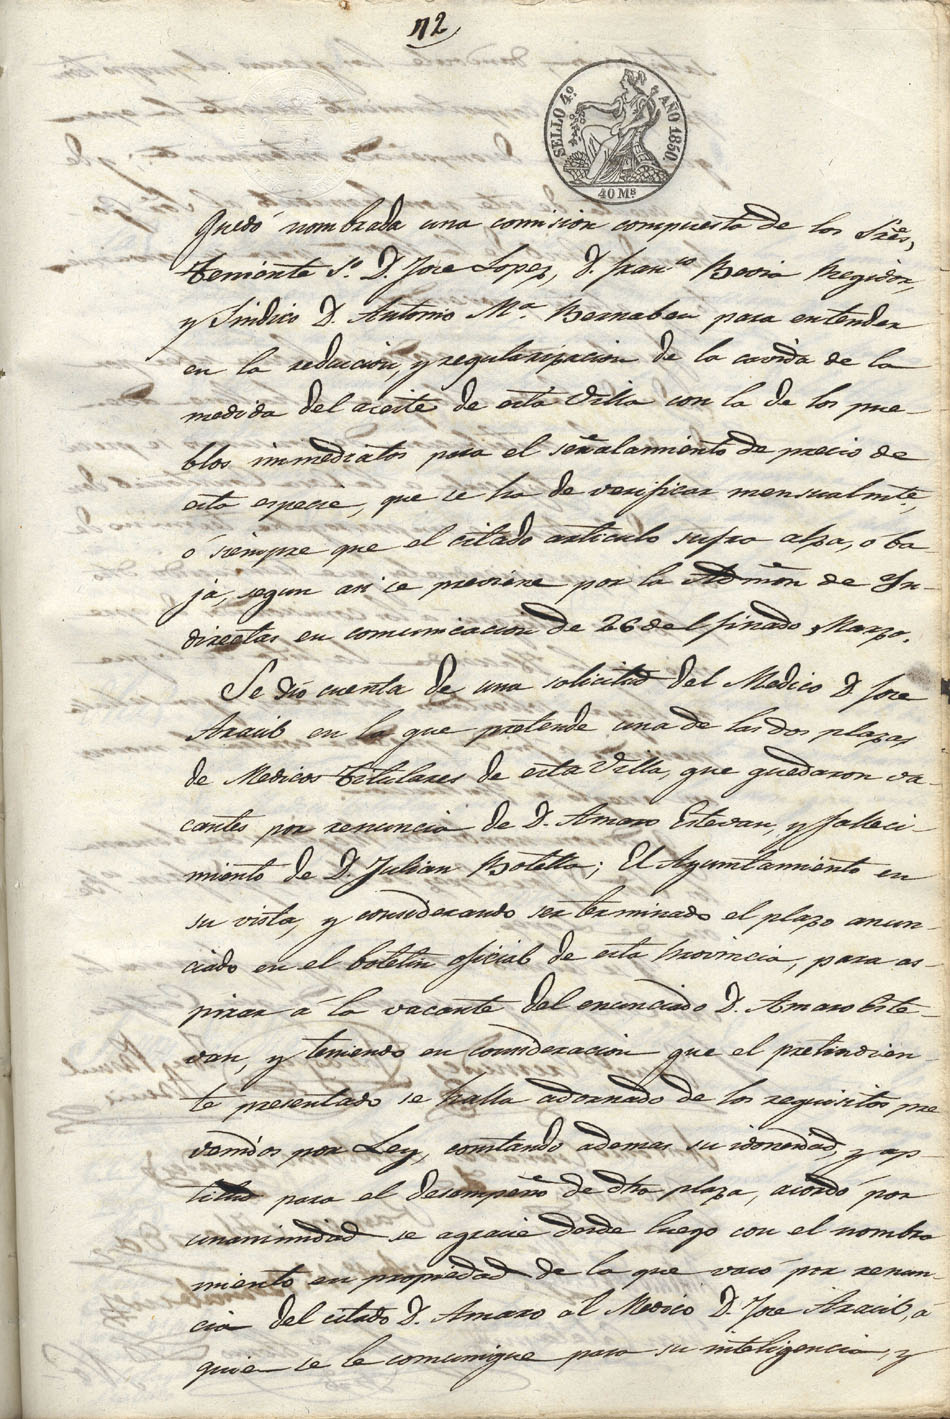 72
SELLO 4º AÑO 1850.
40 Ms
Quedó nombrada una comision compuesta de los Sres,
Teniente 1º. D. Jose Lopez, D. Franco Bevia Regidor,
y Sindico D. Antonio Ma. Bernabeu para entender
en la reducion, y regularizacion de la cavida de la
medida del aceite de esta Villa con la de los pue-
blos inmediatos para el señalamiento de precio de
esta especie, que se ha de verificar mensualmte,
ó siempre que el citado articulo sufra alza, o ba-
ja, segun asi se previene por la Admon de In-
directas en comunicacion de 26 del finado Marzo.
Se dio cuenta de una solicitud del Medico D. Jose
Aracil en la que pretende una de las dos plazas
de Medicos Titulares de esta Villa, que quedaron va-
cantes por renuncia de D. Amaro Estevan, y falleci-
miento de D. Julian Botella; El Ayuntamiento en
su vista, y considerando ser terminado el plazo anun-
ciado en el boletin oficial de esta Provincia, para as-
pirar á la vacante del enunciado D. Amaro Este-
van, y teniendo en consideracion que el pretendien-
te presentado se halla adornado de los requisitos pre
venidos por Ley, constando ademas su idoneidad, y ap-
titud para el desempeño de dha plaza, acordó por
unanimidad se agracie desde luego con el nombra
miento en propiedad de la que vacó por renun-
cia del citado D. Amaro al Medico D. Jose Aracil, á
quien se le comunique para su inteligencia, y